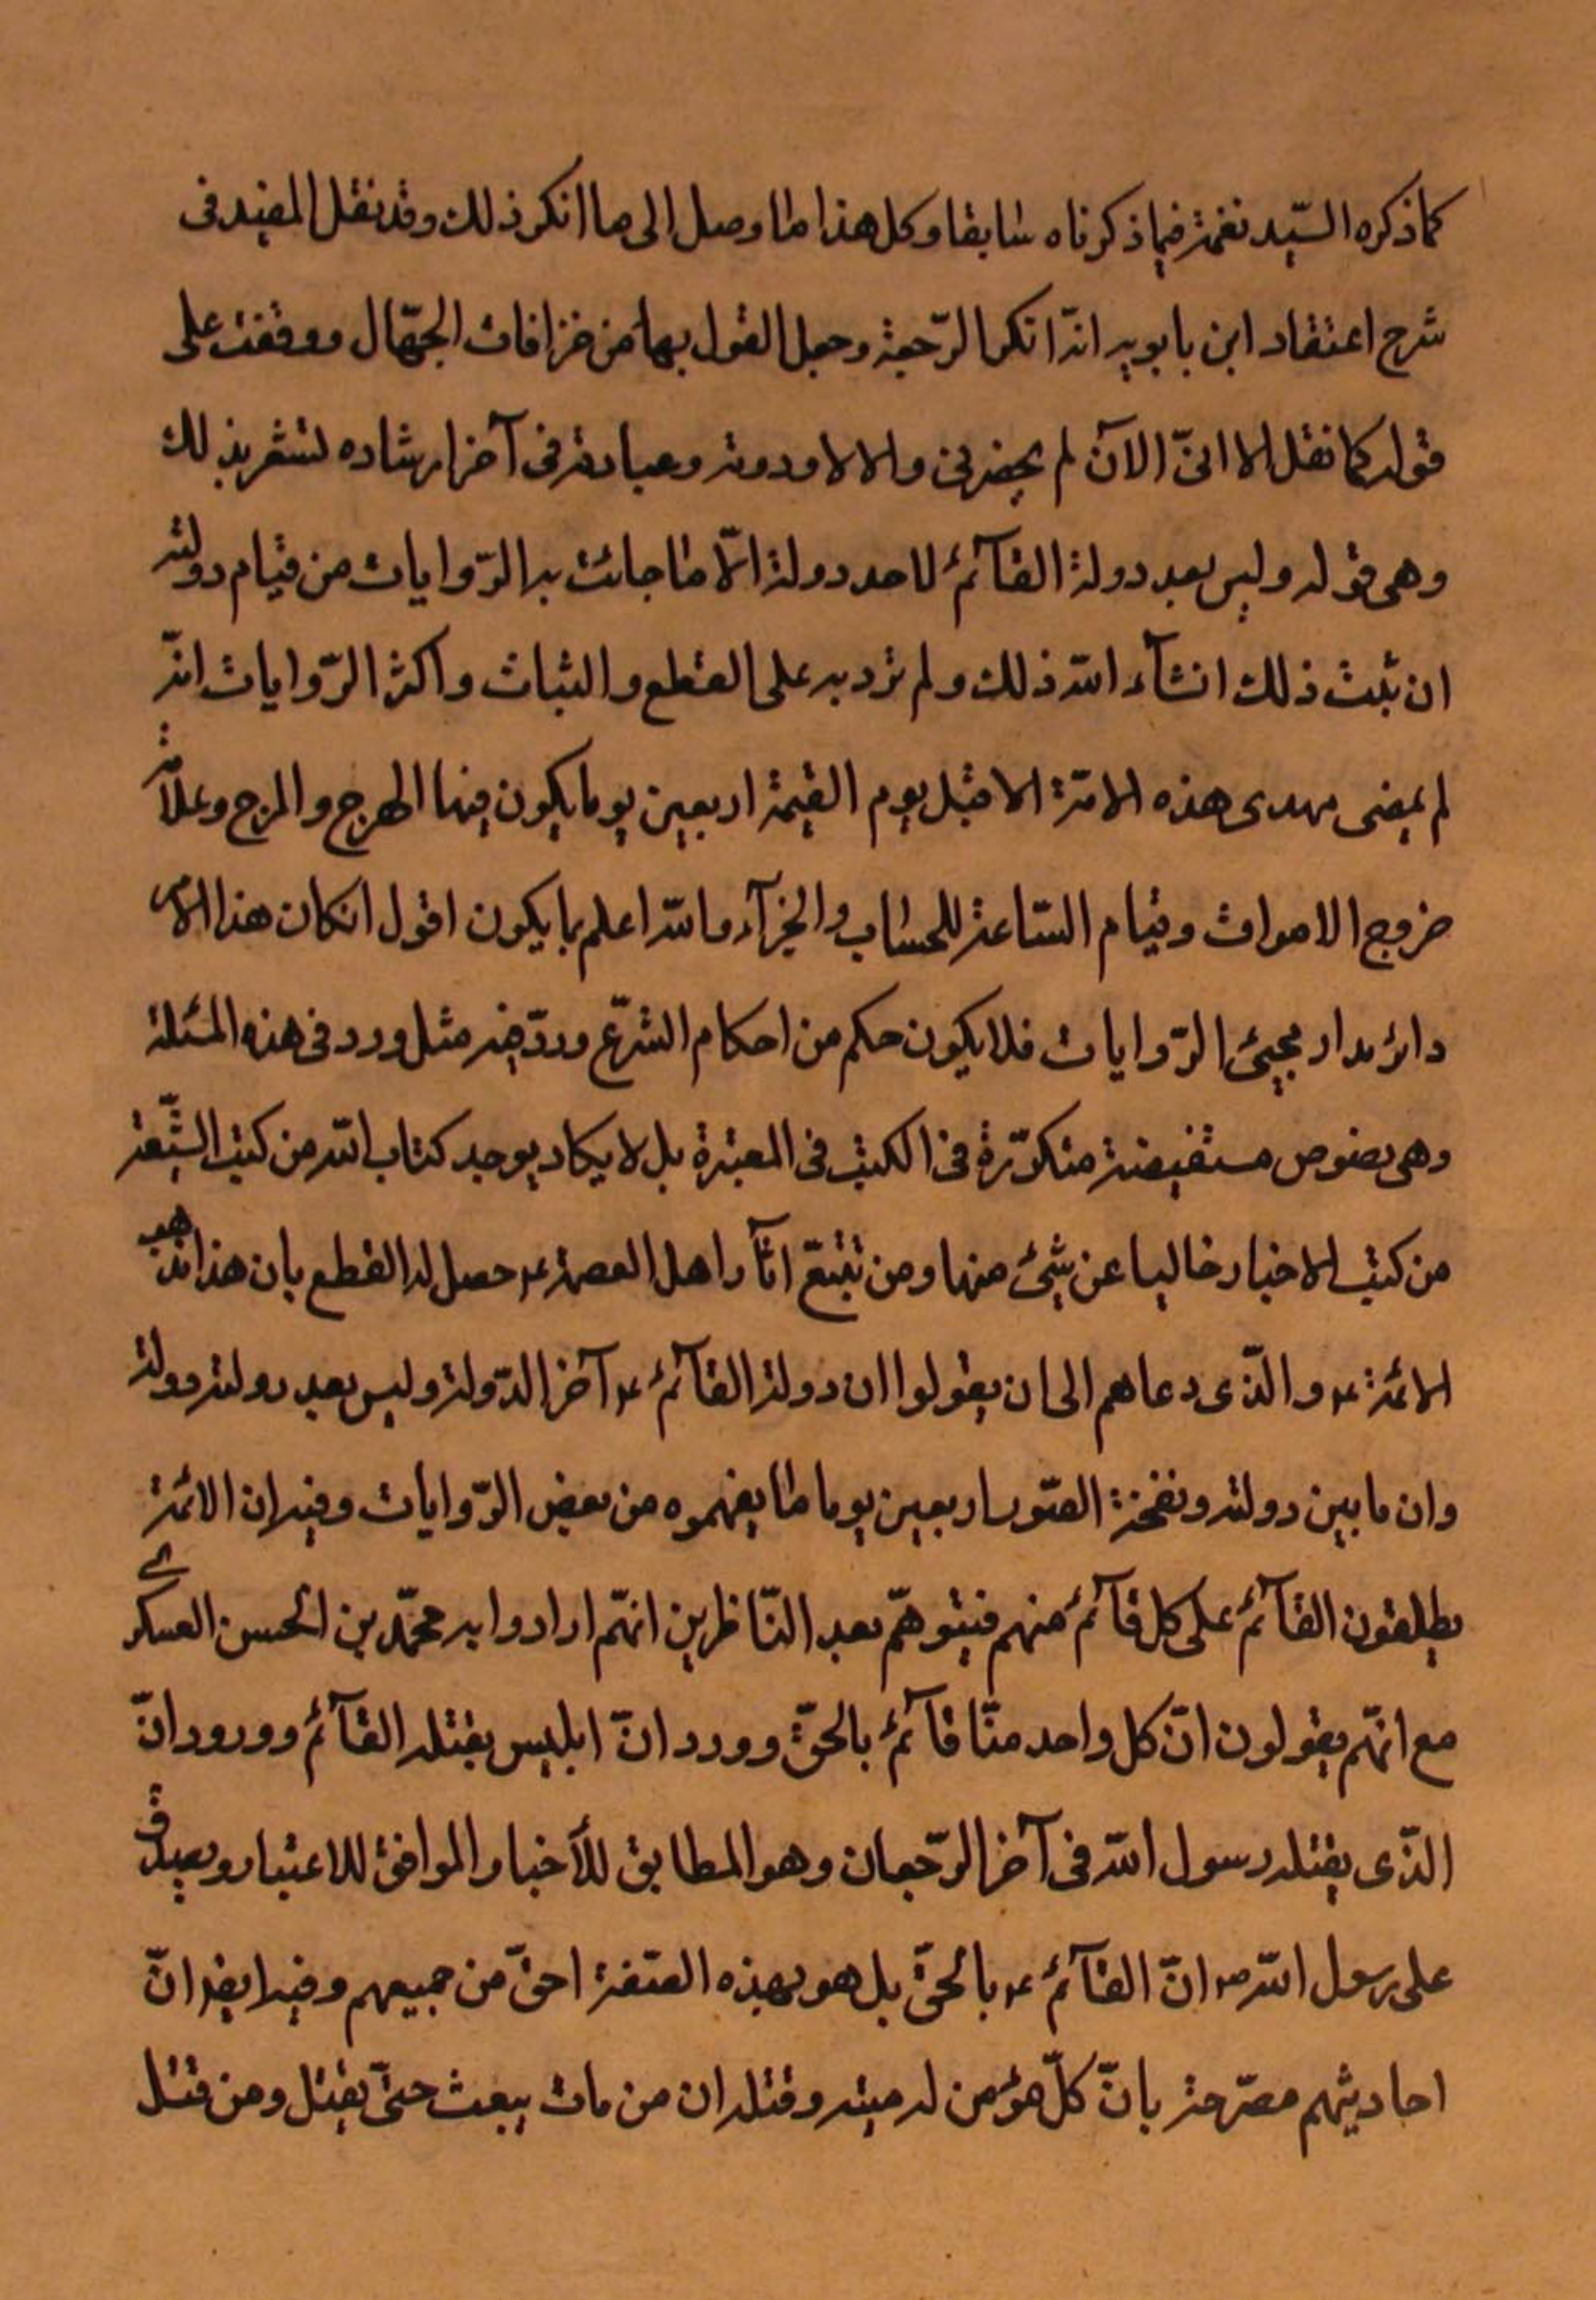 كما ذكره السّيد نعمة فيما ذكرناه سابقا وكل هذا ما وصل الى ما انكر ذلك وقد نقل المفيد فى
شرح اعتقاد ابن بابويه انّه انكر الرّجعة وجعل القول بها من خرافات الجهّال ووقفت على
قوله كما نقل الا انّى الآن لم يحضرنى والا لاوردته وعبارته فى آخر ارشاده تشعر بذلك
وهى قوله وليس بعد دولة القآئم لاحد دولة الّا ما جائت به الرّوايات من قيام دولته
ان ثبت ذلك انشآء الله ذلك ولم ترد به على القطع والثبات واكثر الرّوايات انّه
لم يمضى مهدى هذه الامّة الا قبل يوم القيمة اربعين يوما يكون فيها الهرج والمرج وعلآمة
خروج الاموات وقيام السّاعة للحساب والجزآء والله اعلم بما يكون اقول انكان هذا الامر
دائر مدار مجيئ الرّوايات فلا يكون حكم من احكام الشرّع وردّ فيه مثل ورد فى هذه المسئلة
وهى نصوص مستفيضة متكرّرة فى الكتب فى المعتبرة بل لا يكاد يوجد كتاب الله من كتب الشّيعة
من كتب الاخبار خاليا عن شيئ منها ومن تتبّع اثآر اهل العصمة ع حصل له القطع بان هذا مذهب
الائمة ع والّذى دعاهم الى ان يقولوا ان دولة القآئم ع آخر الدّولة وليس بعد دولته دولة
وان ما بين دولته ونفخة الصّور اربعين يوما ما يفهموه من بعض الرّوايات وفيه ان الائمة
يطلقون القآئم على كل قآئم منهم فيتوهّم بعد النّاظرين انهّم ارادوا به محمّد بن الحسن العسكرى
مع انهّم يقولون انّ كل واحد منّا قآئم بالحقّ وورد انّ ابليس يقتله القآئم وورود انّ
الّذى يقتله رسول الله فى آخر الرّجعات وهو المطابق للأخبار الموافق للاعتبار ويصدق
على رسول الله ص انّ القآئم ع بالحقّ بل هو بهذه الصّفة احقّ من جميعهم وفيه ايضا انّ
احاديثهم مصرّحة بانّ كلّ مؤمن له ميته وقتله ان من مات يبعث حتّى يقتل ومن قتل